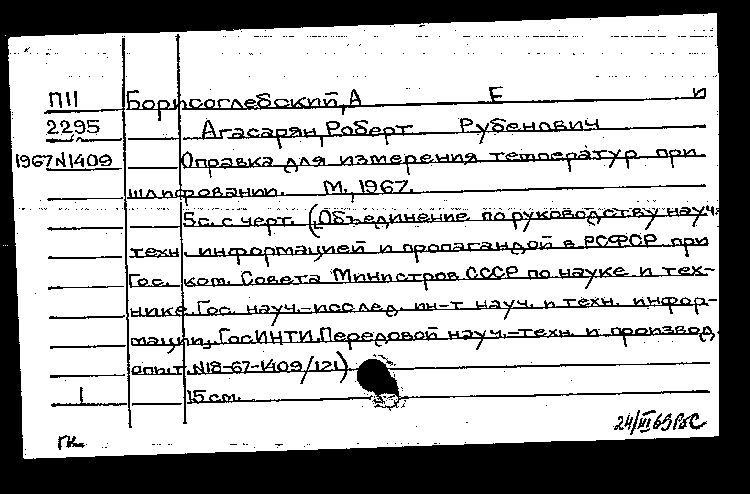 П11 Борисоглебский, А Е и
2295 Агасарян, Роберт Рубенович
1967N1409 Оправка для измерения температур при
шлифовании. М., 1967.
5с. с черт. (Объединение по руководству науч.-
техн. информацией и пропагандой в РСФСР при
Гос. ком. Совета Министров СССР по науке и тех-
нике. Гос. науч.-послед. ин-т науч. и техн. инфор-
мации, ГосИНТИ. Передовой науч.-техн. и производ.
опыт. N18-67-1409/121)
1 15 см.
24/III 69
ГК